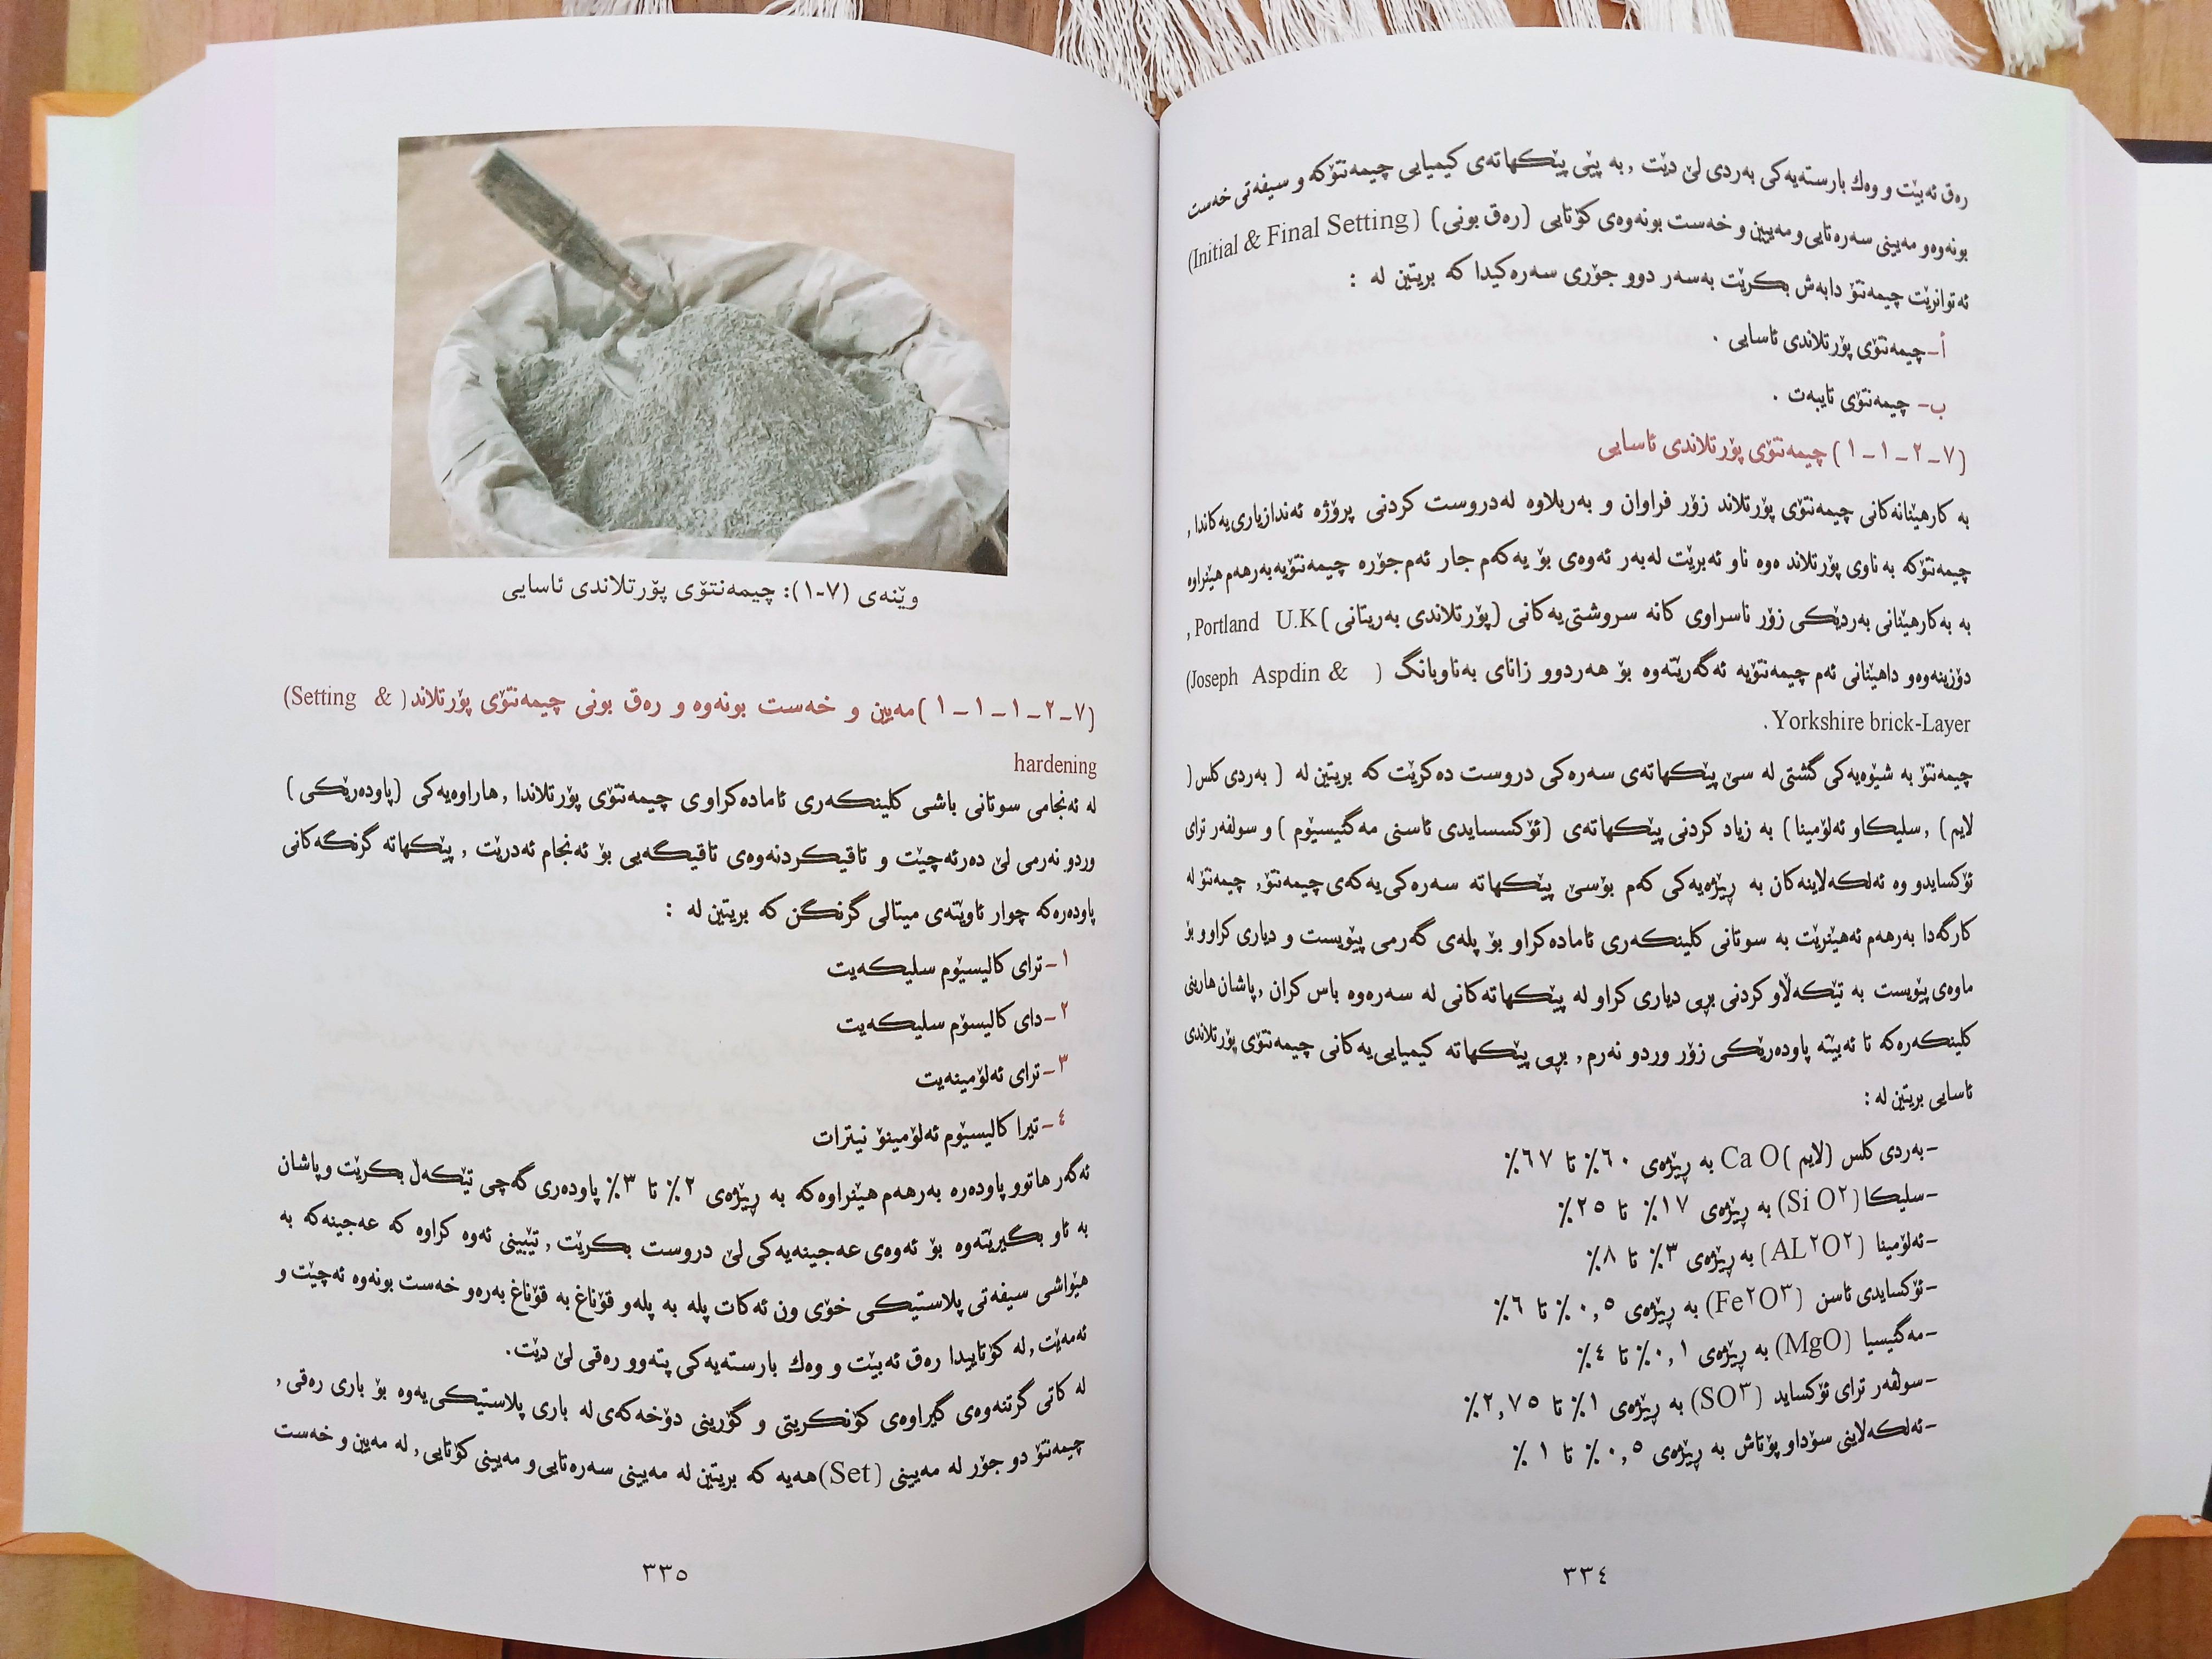 ڕەق ئەبێت و وەك بارستەیەكی بەردی لێ دێت , بە پێی پێكهاتەی كیمیایی چیمەنتۆكە و سیفەتی خەست
بونەوەو مەیینی سەرەتایی و مەیین و خەست بونەوەی كۆتایی (ڕەق بونی) (Initial & Final Setting)
ئەتوانرێت چیمەنتۆ دابەش بكرێت بەسەر دوو جۆری سەرەكیدا كە بریتین لە :
أ- چیمەنتۆی پۆرتلاندی ئاسایی .
ب- چیمەنتۆی تایبەت .
(٧-٢-١-١) چیمەنتۆی پۆرتلاندی ئاسایی
بە كارهێنانەكانی چیمەنتۆی پۆرتلاند زۆر فراوان و بەربلاوە لەدروست كردنی پرۆژە ئەندازیاری یەكاندا ,
چیمەنتۆكە بە ناوی پۆرتلاند ەوە ناو ئەبرێت لەبەر ئەوەی بۆ یەكەم جار ئەم جۆرە چیمەنتۆیە بەرهەم هێنراوە
بە بەكارهێنانی بەردێكی زۆر ناسراوی كانە سروشتی یەكانی (پۆرتلاندی بەریتانی) Portland U.K ,
دۆزینەوەو داهێنانی ئەم چیمەنتۆیە ئەگەرێتەوە بۆ هەردوو زانای بەناوبانگ ( Joseph Aspdin &)
Yorkshire brick-Layer .
چیمەنتۆ بە شێوەیەكی گشتی لە سێ پێكهاتەی سەرەكی دروست دەكرێت كە بریتین لە ( بەردی كلس (
لایم) , سلیكاو ئەلۆمینا) بە زیاد كردنی پێكهاتەی (ئۆكسسایدی ئاسنی مەگنیسیۆم ) و سولفەر ترای
ئۆكسایدو وە ئەلكەلاینەكان بە ڕێژەیەكی كەم بۆسێ پێكهاتە سەرەكی یەكەی چیمەنتۆ, چیمەنتۆ لە
كارگەدا بەرهەم ئەهێنرێت بە سوتانی كلینكەری ئامادەكراو بۆ پلەی گەرمی پێویست و دیاری كراوو بۆ
ماوەی پێویست بە تێكەڵاو كردنی بڕی دیاری كراو لە پێكهاتەكانی لە سەرەوە باس كران , پاشان هاڕینی
كلینكەرەكە تا ئەبێتە پاودەرێكی زۆر وردو نەرم , بڕی پێكهاتە كیمیایی یەكانی چیمەنتۆی پۆرتلاندی
ئاسایی بریتین لە :
-بەردی كلس (لایم) Ca O بە ڕێژەی ٦٠٪ تا ٦٧٪
-سلیكا (Si O٢) بە ڕێژەی ١٧٪ تا ٢٥٪
-ئەلۆمینا (AL٢O٢) بە ڕێژەی ٣٪ تا ٨٪
-ئۆكسایدی ئاسن (Fe٢O٣) بە ڕێژەی ٠,٥٪ تا ٦٪
-مەگنیسیا (MgO) بە ڕێژەی ٠,١٪ تا ٤٪
-سولفەر ترای ئۆكساید (SO٣) بە ڕێژەی ١٪ تا ٢,٧٥٪
-ئەلكەلاینی سۆداو پۆتاش بە ڕێژەی ٠,٥٪ تا ١٪
٣٣٤
وێنەی (٧-١): چیمەنتۆی پۆرتلاندی ئاسایی
(٧-٢-١-١-١) مەیین و خەست بونەوە و ڕەق بونی چیمەنتۆی پۆرتلاند ( Setting &)
hardening
لە ئەنجامی سوتانی باشی كلینكەری ئامادەكراوی چیمەنتۆی پۆرتلاندا , هاڕاوەیەكی (پاودەرێكی)
وردو نەرمی لێ دەرئەچێت و تاقیكردنەوەی تاقیگەیی بۆ ئەنجام ئەدرێت , پێكهاتە گرنگەكانی
پاودەرەكە چوار ئاوێتەی میتالی گرنگن كە بریتین لە :
١-ترای كالیسیۆم سلیكەیت
٢-دای كالیسۆم سلیكەیت
٣-ترای ئەلۆمینەیت
٤-تیرا كالیسیۆم ئەلۆمینۆ نیترات
ئەگەر هاتوو پاودەرە بەرهەم هێنراوەكە بە ڕێژەی ٢٪ تا ٣٪ پاودەری گەچی تێكەڵ بكرێت و پاشان
بە ئاو بگیرێتەوە بۆ ئەوەی عەجینەیەكی لێ دروست بكرێت , تێبینی ئەوە كراوە كە عەجینەكە بە
هێواشی سیفەتی پلاستیكی خۆی ون ئەكات پلە بە پلەو قۆناغ بە قۆناغ بەرەو خەست بونەوە ئەچێت و
ئەمەێت , لە كۆتاییدا ڕەق ئەبێت و وەك بارستەیەكی پتەوو ڕەقی لێ دێت.
لە كاتی گرتنەوەی گیراوەی كۆنكریتی و گۆڕینی دۆخەكەی لە باری پلاستیكی یەوە بۆ باری ڕەقی ,
چیمەنتۆ دو جۆر لە مەیینی (Set) هەیە كە بریتین لە مەیینی سەرەتایی و مەیینی كۆتایی , لە مەیین و خەست
٣٣٥